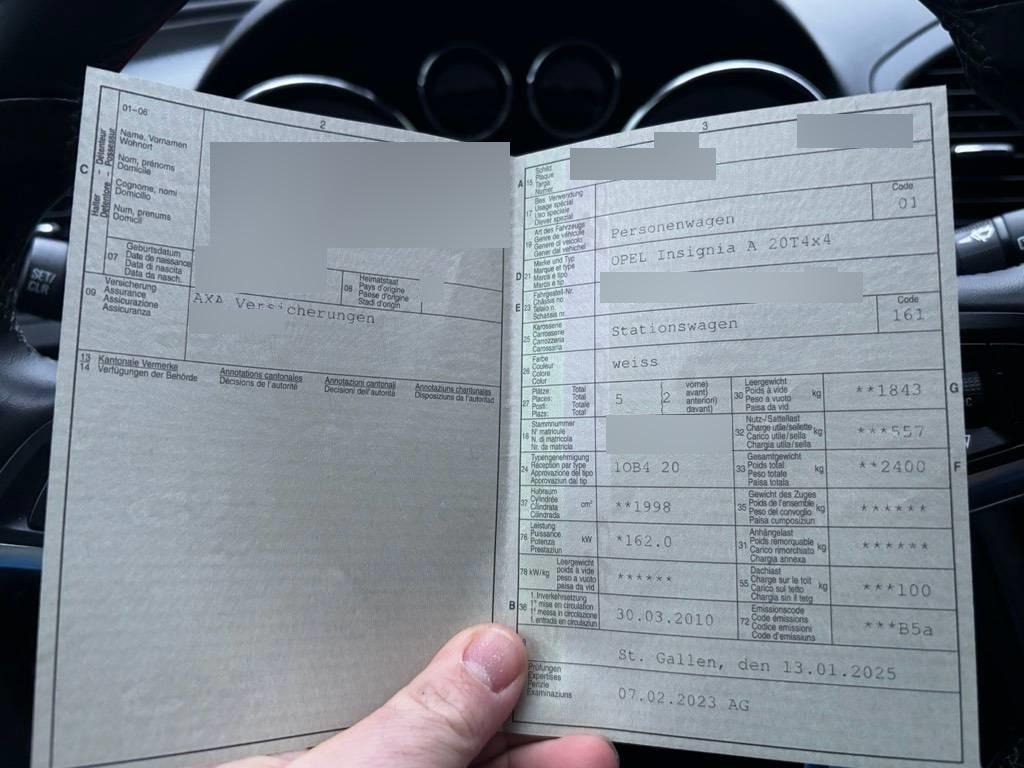 2
01-06
Name, Vornamen
Wohnort
Nom, prénoms
Domicile
Cognome, nomi
Domicilio
Num, prenums
Domicil
C
Halter - Détenteur
Detentore - Possessur
07
Geburtsdatum
Date de naissance
Data di nascita
Data da nasch.
08
Heimatstaat
Pays d'origine
Paese d'origine
Stadi d'origin
09
Versicherung
Assurance
Assicurazione
Assicuranza
AXA Versicherungen
13
14
Kantonale Vermerke
Verfügungen der Behörde
Annotations cantonales
Décisions de l'autorité
Annotazioni cantonali
Decisioni dell'autorità
Annotaziuns chantunalas
Disposiziuns da l'autoritad
3
A
15
Schild
Plaque
Targa
Numer
17
Bes. Verwendung
Usage spécial
Uso speciale
Diever spezial
Code
01
19
Art des Fahrzeugs
Genre de véhicule
Genere di veicolo
Gener dal vehichel
Personenwagen
D
21
Marke und Typ
Marque et type
Marca e tipo
Marca e tip
OPEL Insignia A 20T4x4
E
23
Fahrgestell-Nr.
Châssis no
Telaio n.
Schassis nr.
25
Karosserie
Carrosserie
Carrozzeria
Carossaria
Stationswagen
Code
161
26
Farbe
Couleur
Colore
Colur
weiss
27
Plätze: Total
Places: Total
Posti: Totale
Plazs: Total
5
(2
vorne)
avant)
anteriori)
davant)
30
Leergewicht
Poids à vide
Peso a vuoto
Paisa da vid
kg
**1843
G
18
Stammnummer
N° matricule
N. di matricola
Nr. da matricla
32
Nutz-/Sattellast
Charge utile/sellette
Carico utile/sella
Chargia utila/sella
kg
***557
24
Typengenehmigung
Réception par type
Approvazione del tipo
Approvaziun dal tip
1OB4 20
33
Gesamtgewicht
Poids total
Peso totale
Paisa totala
kg
**2400
F
37
Hubraum
Cylindrée
Cilindrata
Cilindrada
cm³
**1998
35
Gewicht des Zuges
Poids de l'ensemble
Peso del convoglio
Paisa cumposiziun
kg
******
76
Leistung
Puissance
Potenza
Prestaziun
kW
*162.0
31
Anhängelast
Poids remorquable
Carico rimorchiato
Chargia annexa
kg
******
78 kW/kg
Leergewicht
poids à vide
peso a vuoto
paisa da vid
******
55
Dachlast
Charge sur le toit
Carico sul tetto
Chargia sin il tetg
kg
***100
B
36
1. Inverkehrsetzung
1re mise en circulation
1a messa in circolazione
1. entrada en circulaziun
30.03.2010
72
Emissionscode
Code émissions
Codice emissioni
Code d'emissiuns
***B5a
St. Gallen, den 13.01.2025
Prüfungen
Expertises
Perizie
Examinaziuns
07.02.2023 AG
SET/
CLR